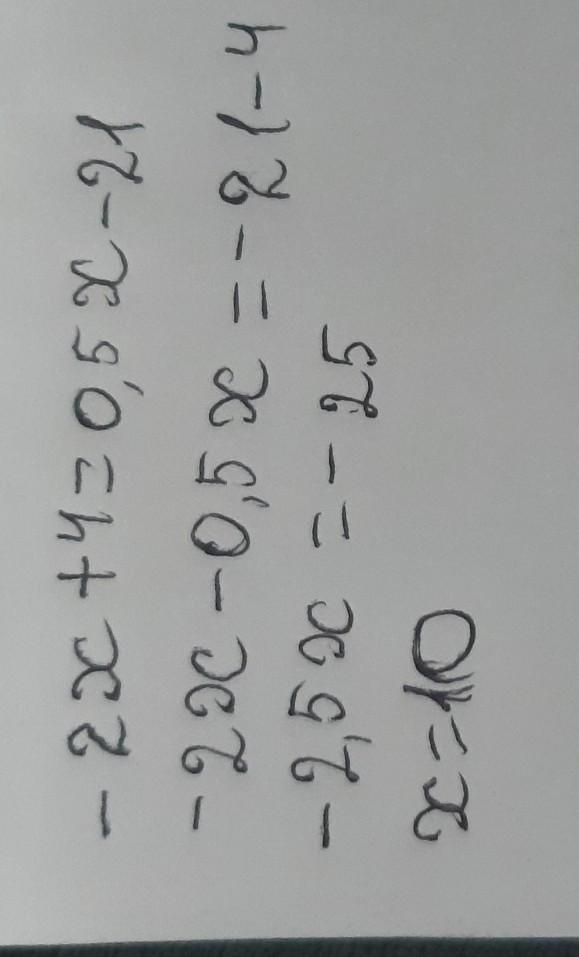 -2x+4=0,5x-21
-2x-0,5x=-21-4
-2,5x=-25
x=10